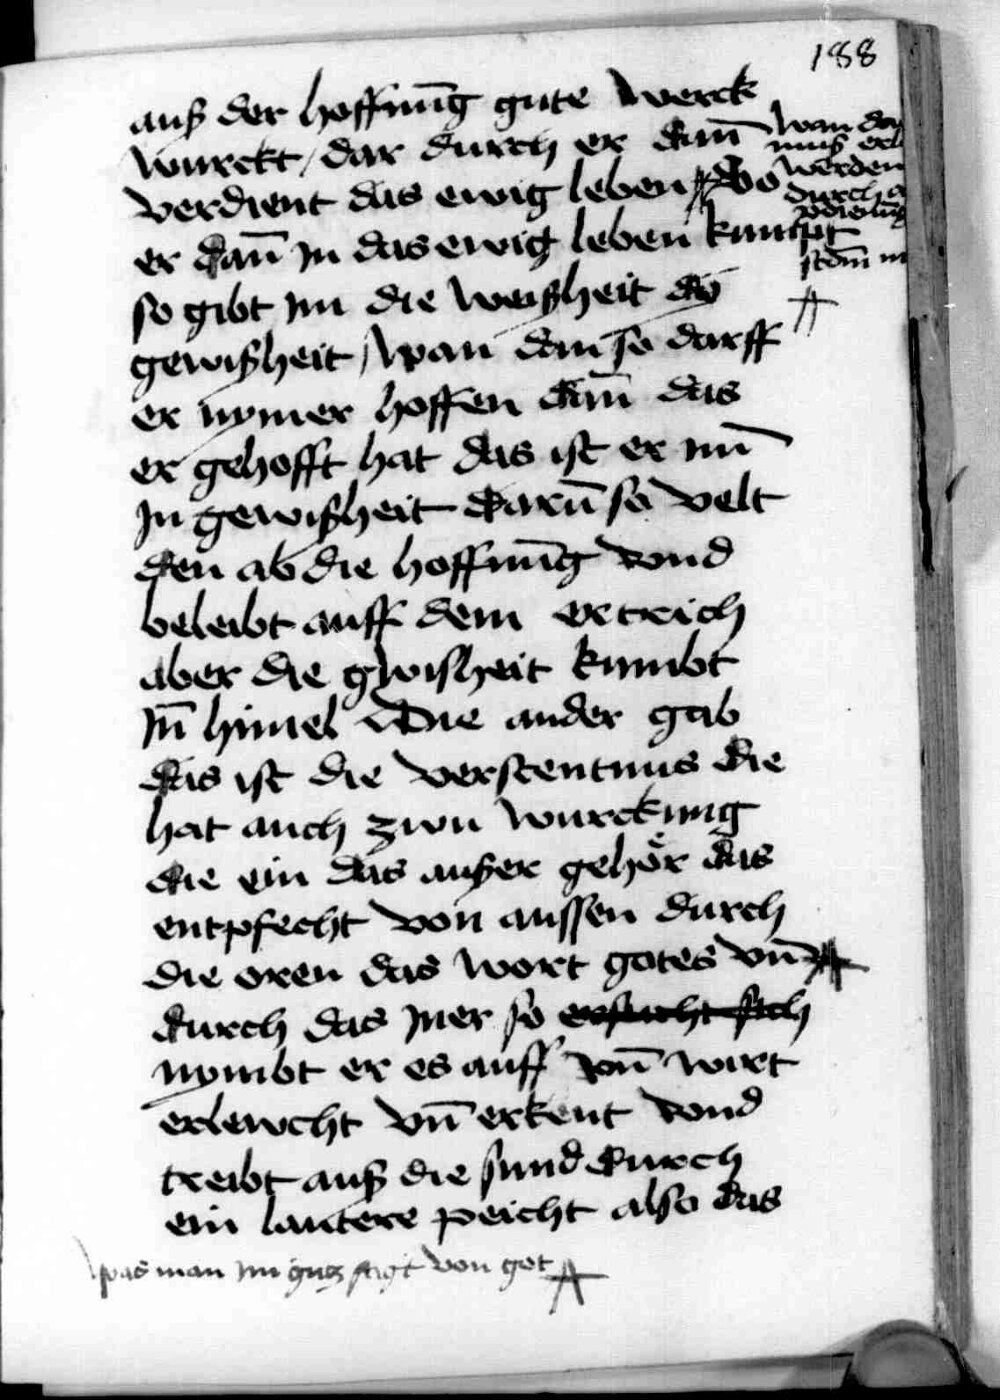 188
auß der hoffnūg gute werck
wurckt / dar durch er dan̄
verdient das ewig leben So
er dan̄ In das ewig leben kumpt
so gibt im die weißheit dÿ
gewißheit / wan dan so darff
er nymer hoffen dan̄ das
er gehofft hat das ist er nun̄
In gewißheit darū so velt
den ab die hoffnūg vnd
beleibt auff dem ertrich
aber die gwisheit kumbt
In̄ himel Die ander gab
das ist die verstentnus die
hat auch zwu wurckung
die ein das außer gehör das
entpfecht von aussen durch
die oren das wort gotes vn̄
durch das Iner so ersucht sich
nymbt er es auff vn̄ wirt
erlewcht vn̄ erkent vnd
treibt auß die sund durch
ein lautere peicht also das
was man im gutz sagt von got
wan da
muß erl
werden
durch